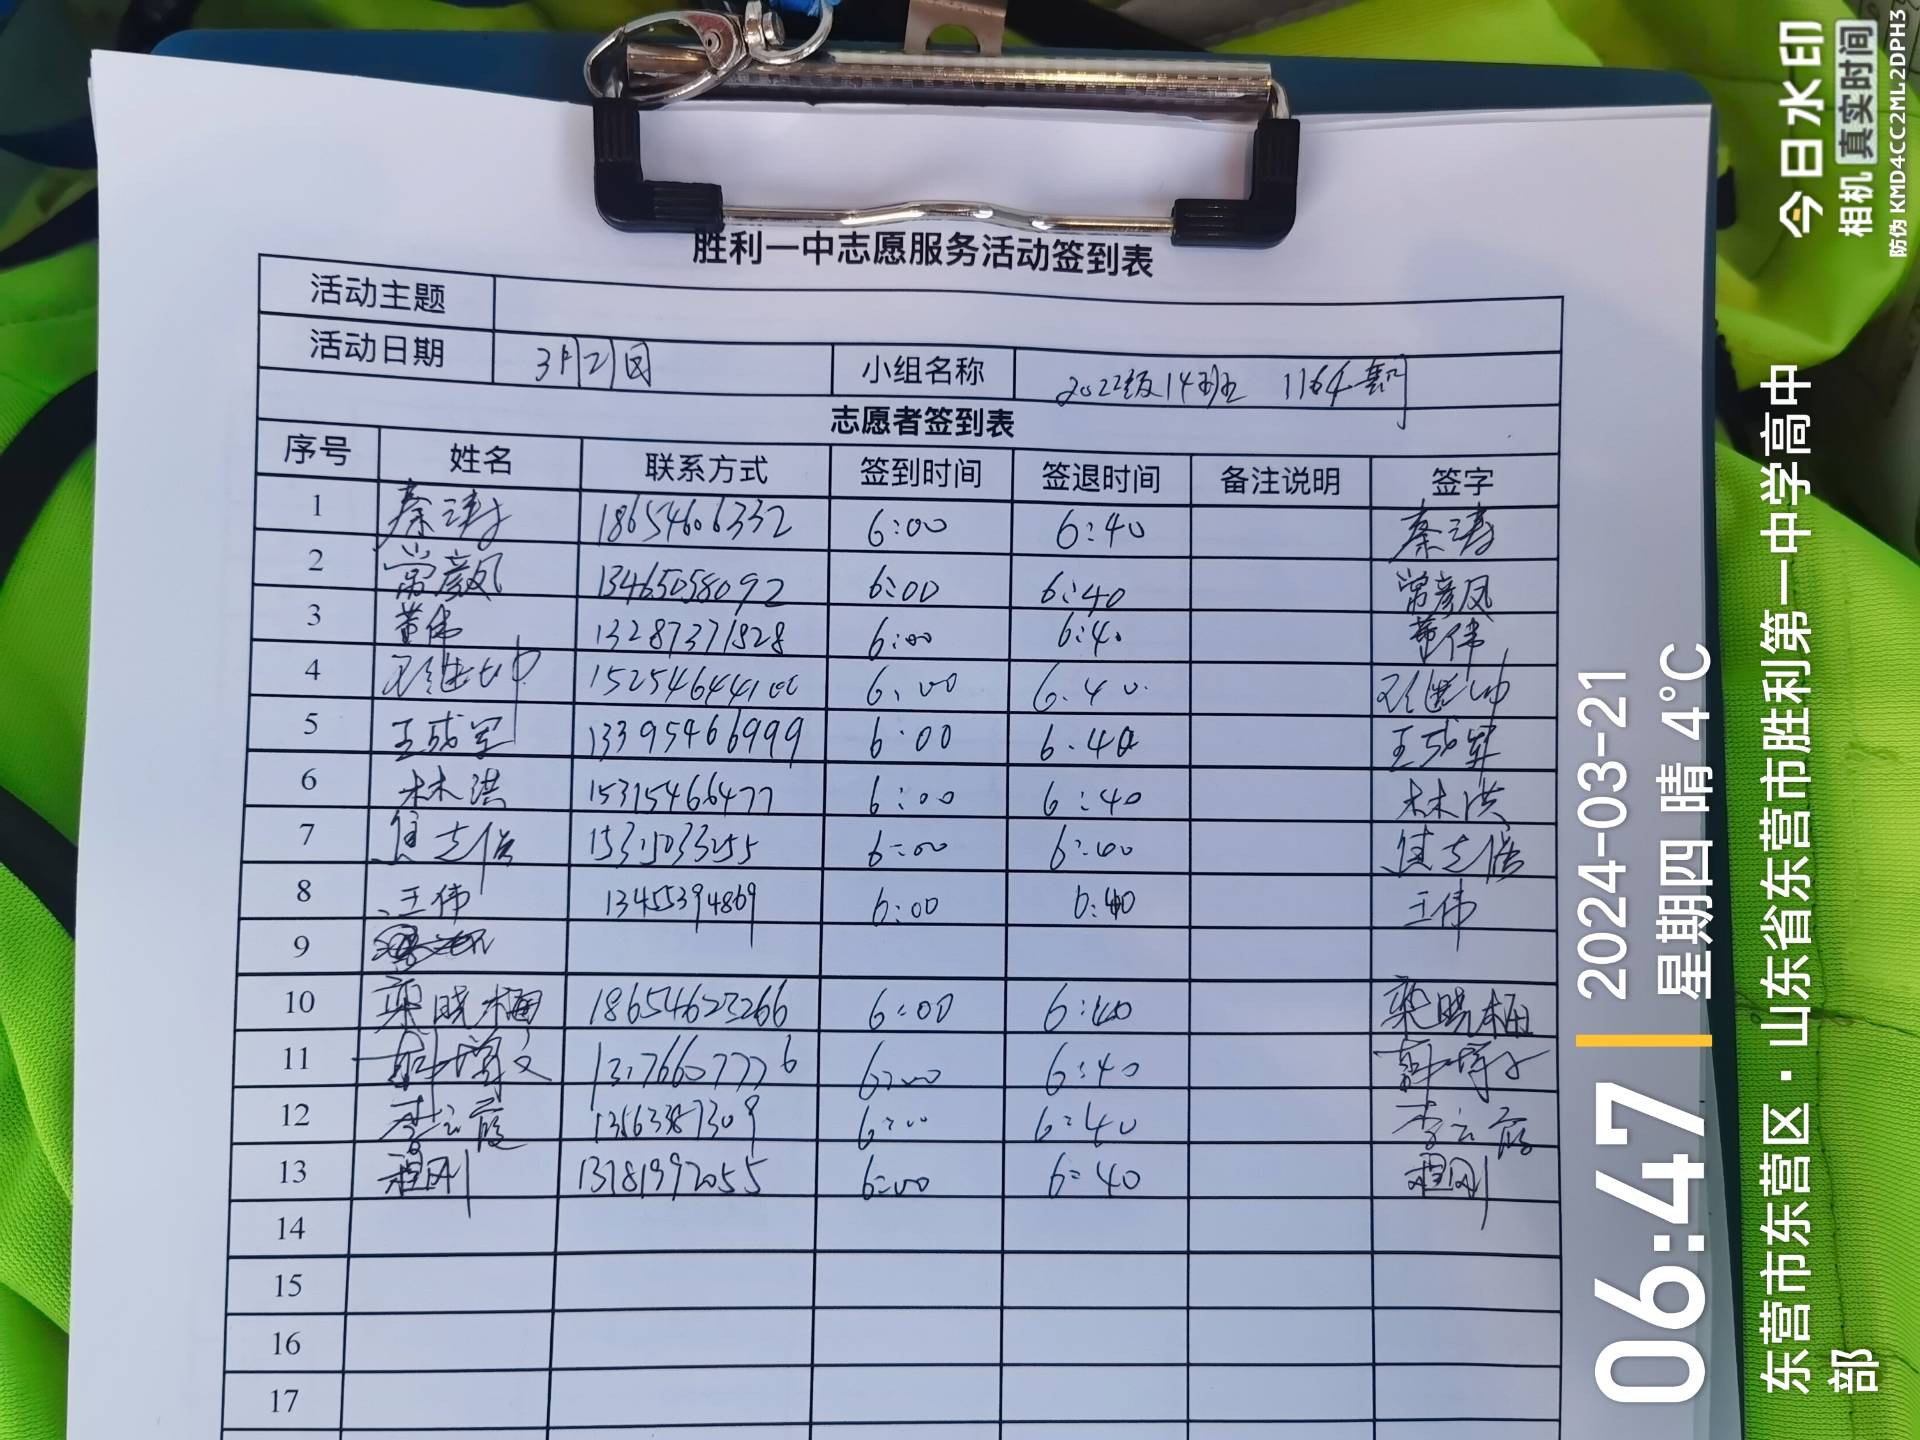 胜利一中志愿服务活动签到表
活动主题
活动日期 3月21日 小组名称 2022级14班 1164
志愿者签到表
序号 姓名 联系方式 签到时间 签退时间 备注说明 签字
1 秦涛 18654606332 6:00 6:40 秦涛
2 常彦凤 13465058092 6:00 6:40 常彦凤
3 董伟 13287371828 6:00 6:40 董伟
4 15254644100 6:00 6:40
5 王成军 13395466999 6:00 6:40 王成军
6 林洪 15315466477 6:00 6:40 林洪
7 15315033255 6:00 6:00
8 王伟 13455394869 6:00 6:40 王伟
9
10 栾晓楠 18654623266 6:00 6:40 栾晓楠
11 6:00 6:40
12 李云霞 13563387309 6:00 6:40 李云霞
13 程刚 6:00 6:40 程刚
14
15
16
17
今日水印
相机 真实时间
防伪 KMD4CC2ML2DPH3
06:47
2024-03-21
星期四 晴 4°C
东营市东营区·山东省东营市胜利第一中学高中
部